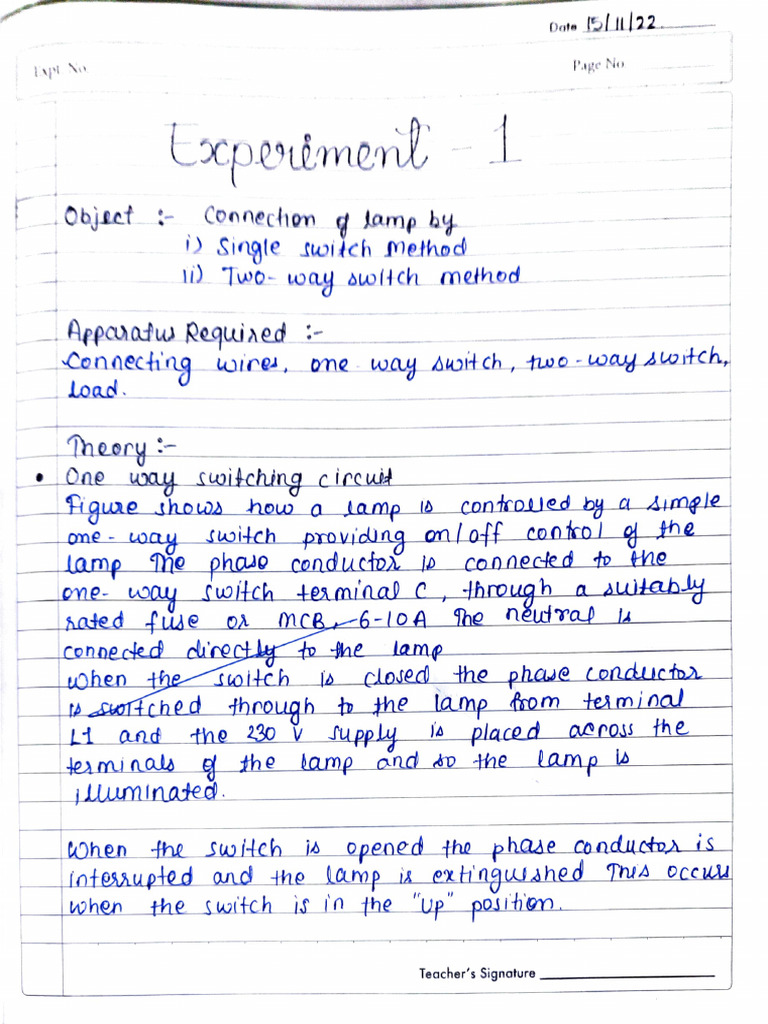 Date 15/11/22
Expt. No.
Page No
Experiment - 1
Object :- Connection of lamp by
i) Single switch method
ii) Two-way switch method
Apparatus Required :-
Connecting wires, one way switch, two-way switch,
load.
Theory :-
• One way switching circuit
Figure shows how a lamp is controlled by a simple
one-way switch providing on/off control of the
lamp The phase conductor is connected to the
one-way switch terminal C, through a suitably
rated fuse or MCB, 6-10A The neutral is
connected directly to the lamp
When the switch is closed the phase conductor
is switched through to the lamp from terminal
L1 and the 230 V supply is placed across the
terminals of the lamp and so the lamp is
illuminated.
When the switch is opened the phase conductor is
interrupted and the lamp is extinguished This occurs
when the switch is in the "up" position.
Teacher's Signature